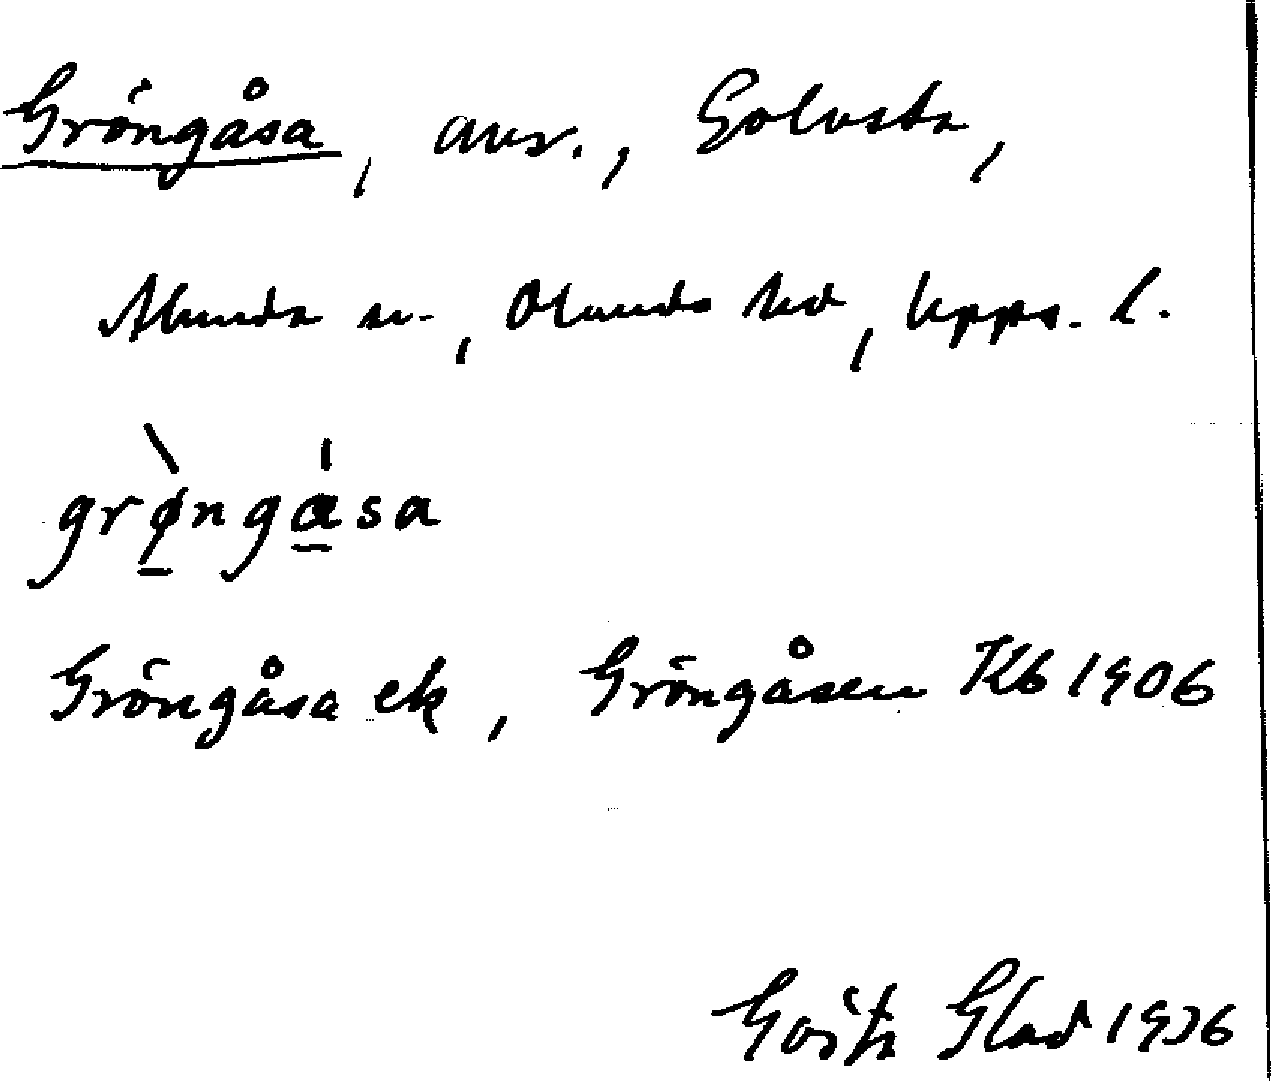 Gröngåsa, avs., Golvsta,
Alunda sn., Olands hd, Upps. l.
grø̀ngása
Gröngåsa ek, Gröngåsen Kb 1906
Gösta Glad 1936